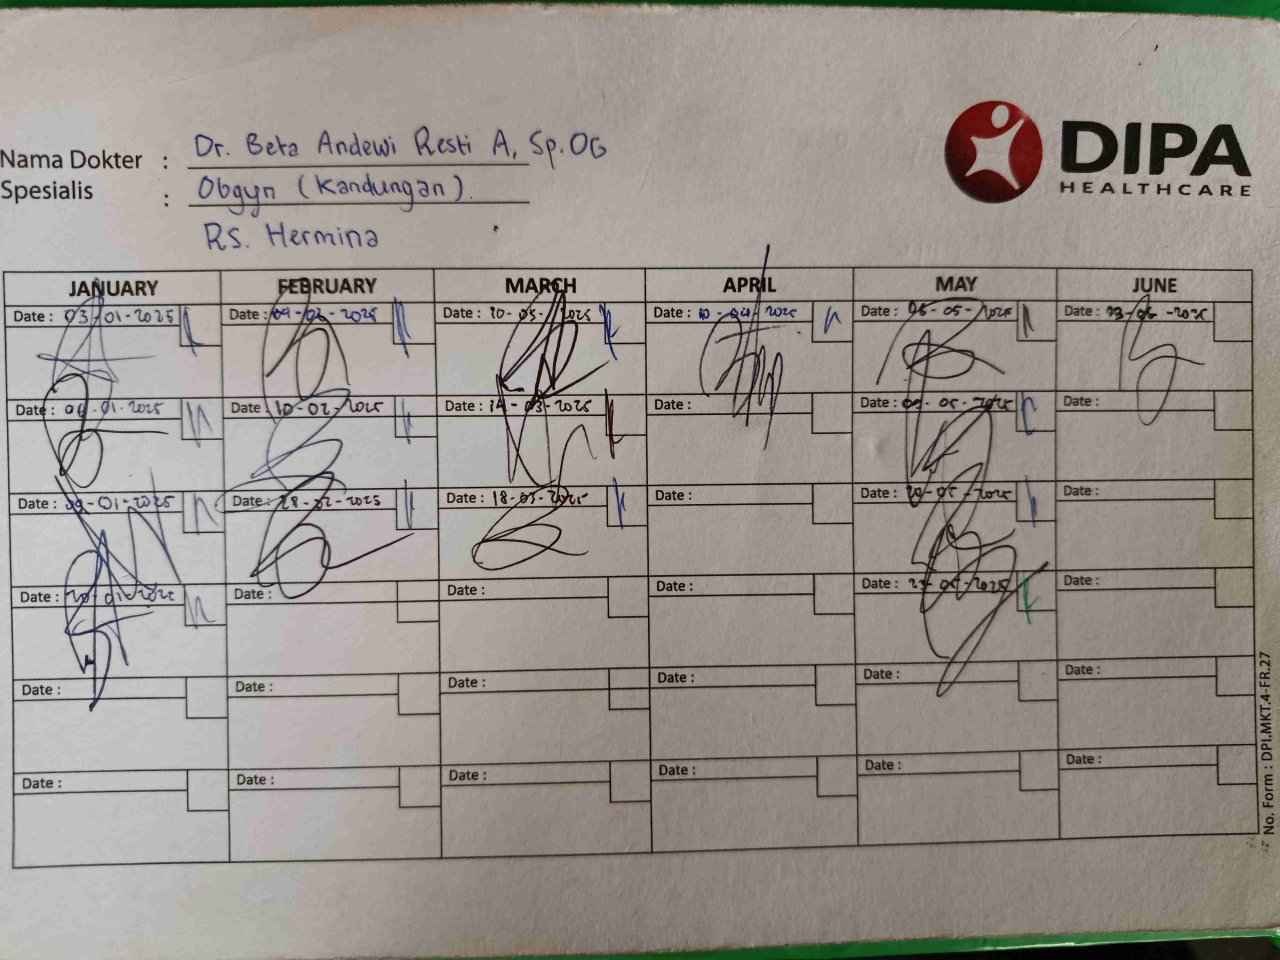 DIPA
HEALTHCARE
Nama Dokter : Dr. Beta Andewi Resti A, Sp.OG
Spesialis : Obgyn (Kandungan).
RS. Hermina
JANUARY FEBRUARY MARCH APRIL MAY JUNE
Date : 03-01-2025 Date : 04-02-2025 Date : 10-03-2025 Date : 10-04-2025 Date : 05-2025 Date : 06-2025
Date : 06-01-2025 Date : 10-02-2025 Date : 14-03-2025 Date : Date : 09-05-2025 Date :
Date : 09-01-2025 Date : 28-02-2025 Date : 18-03-2025 Date : Date : 20-05-2025 Date :
Date : 20-01-2025 Date : Date : Date : Date : 23-05-2025 Date :
Date : Date : Date : Date : Date : Date :
Date : Date : Date : Date : Date : Date :
No. Form : DPI.MKT.4-FR.27